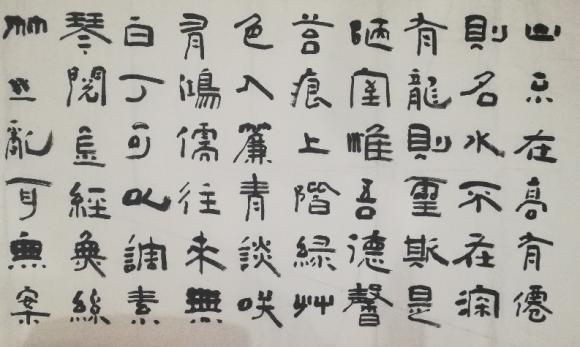 山不在高有僊
則名水不在深
有龍則靈斯是
陋室惟吾德馨
苔痕上階綠艸
色入簾青談咲
有鴻儒往來無
白丁可以調素
琴閱金經無絲
竹之亂耳無案